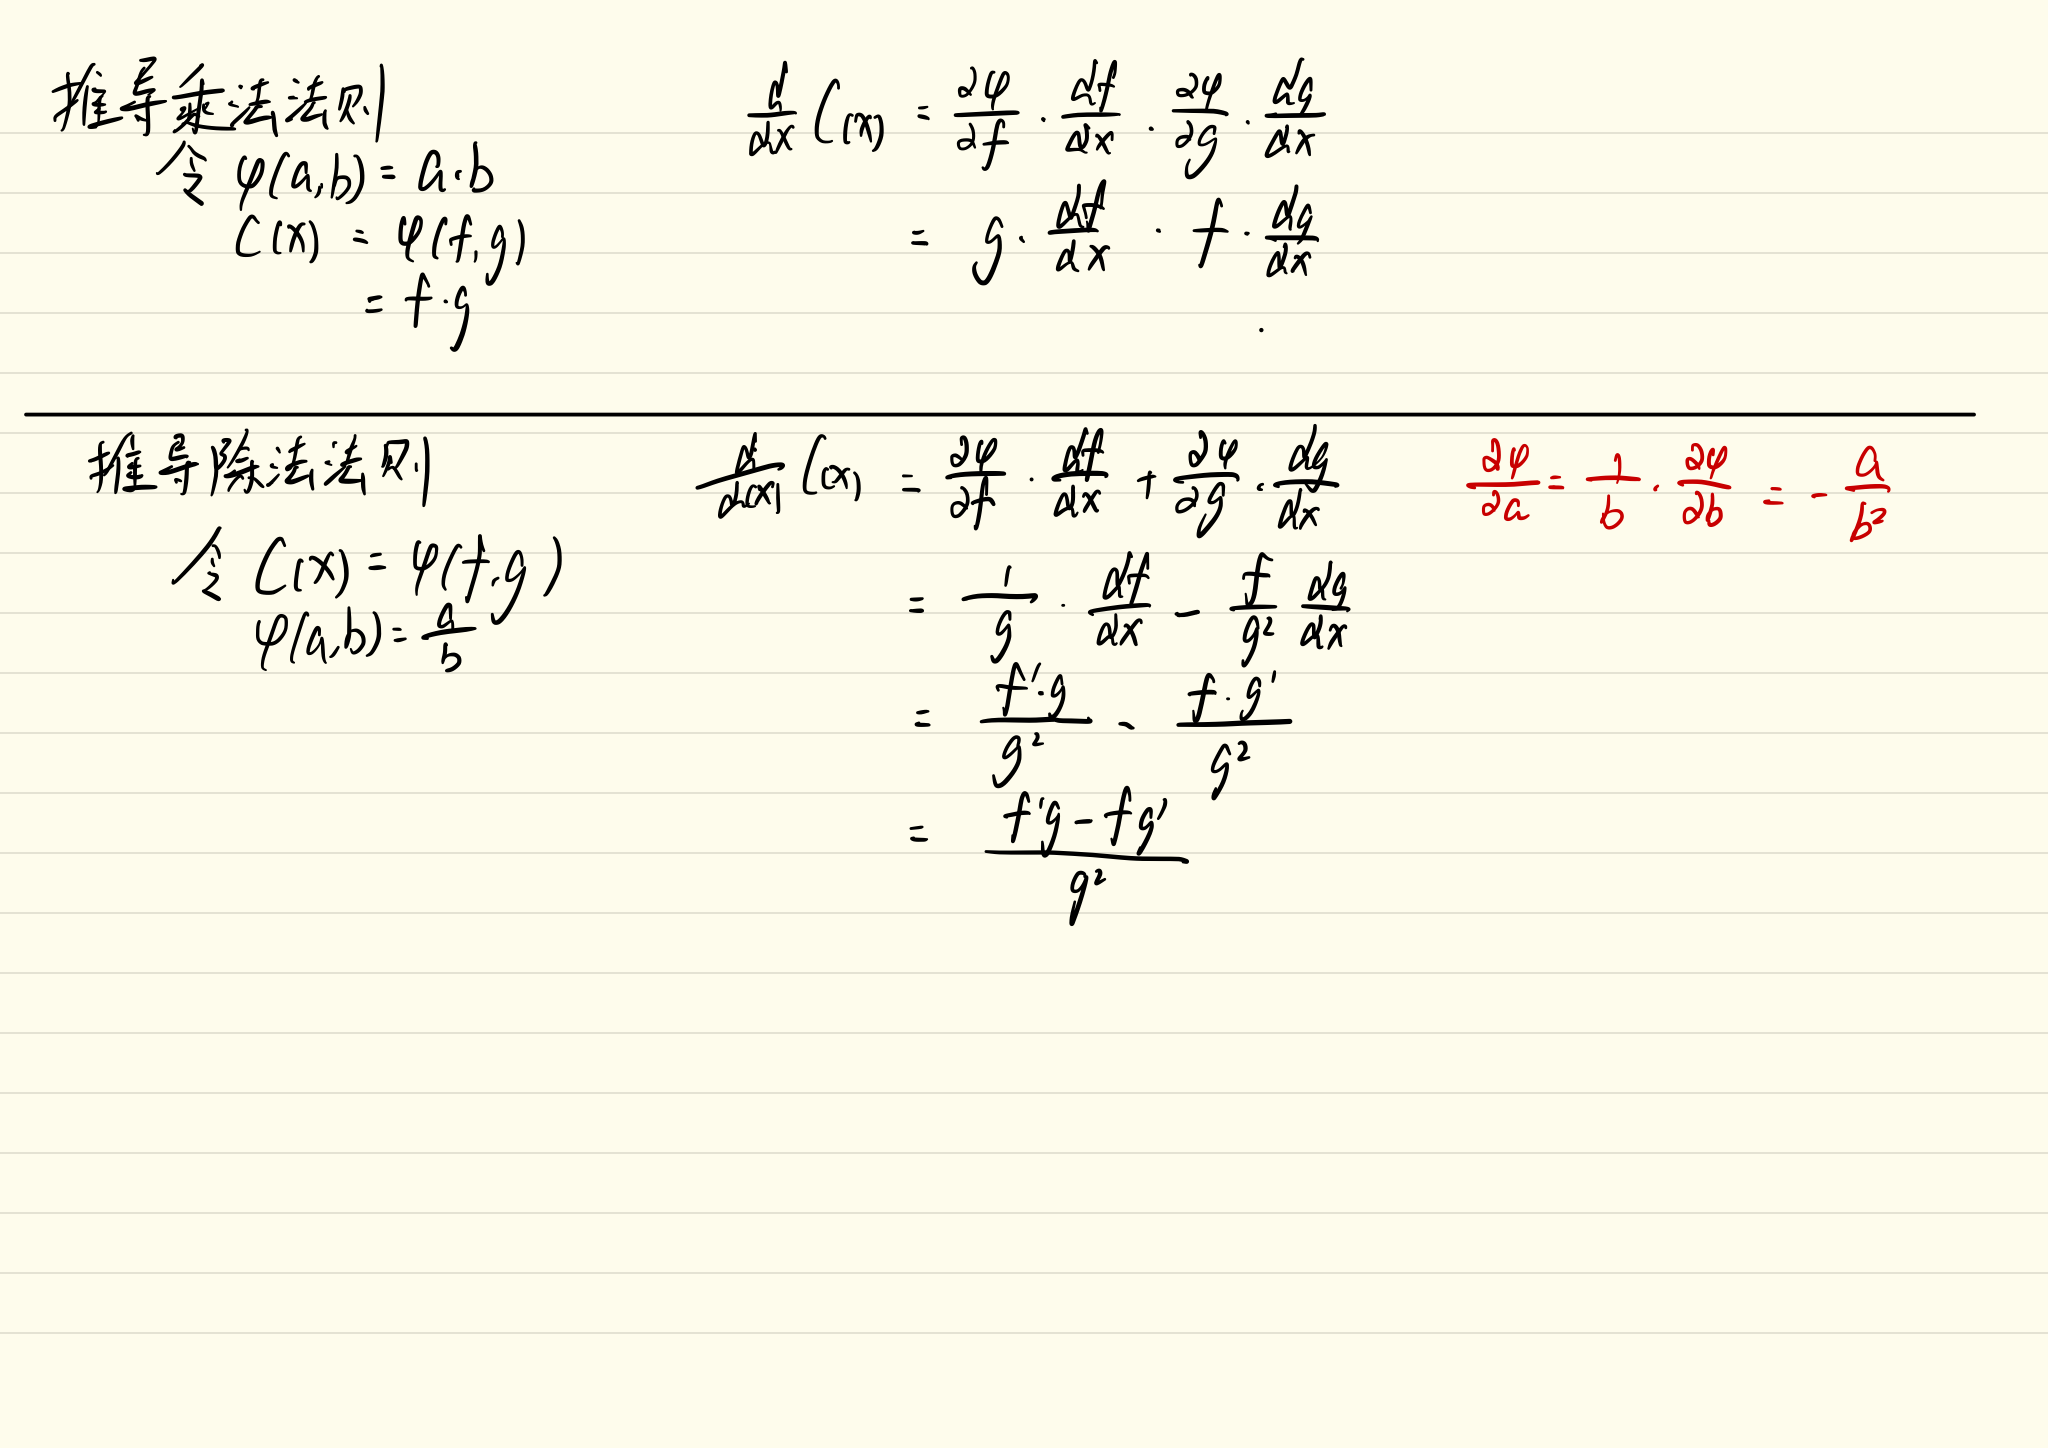 推导乘法法则
令 φ(a,b) = a·b
C(x) = φ(f,g)
= f·g
d/dx C(x) = ∂φ/∂f · df/dx · ∂φ/∂g · dg/dx
= g · df/dx · f · dg/dx
推导除法法则
令 C(x) = φ(f,g)
φ(a,b) = a/b
d/d(x) C(x) = ∂φ/∂f · df/dx + ∂φ/∂g · dg/dx
= 1/g · df/dx - f/g² dg/dx
= f'·g/g² - f·g'/g²
= (f'g - fg')/g²
∂φ/∂a = 1/b · ∂φ/∂b = - a/b²